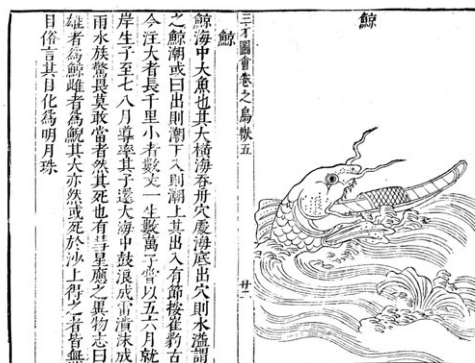 鯨
三才圖會卷之鳥獸五
廿二
鯨
鯨海中大魚也其大橫海吞舟穴處海底出穴則水溢謂
之鯨潮或曰出則潮下入則潮上其出入有節按崔豹古
今注大者長千里小者數丈一生數萬子嘗以五六月就
岸生子至七八月導率其子還大海中鼓浪成雷濆沫成
雨水族驚畏莫敢當者然其死也有彗星應之異物志曰
雄者爲鯨雌者爲鯢其大亦然或死於沙上得之者皆無
目俗言其目化爲明月珠